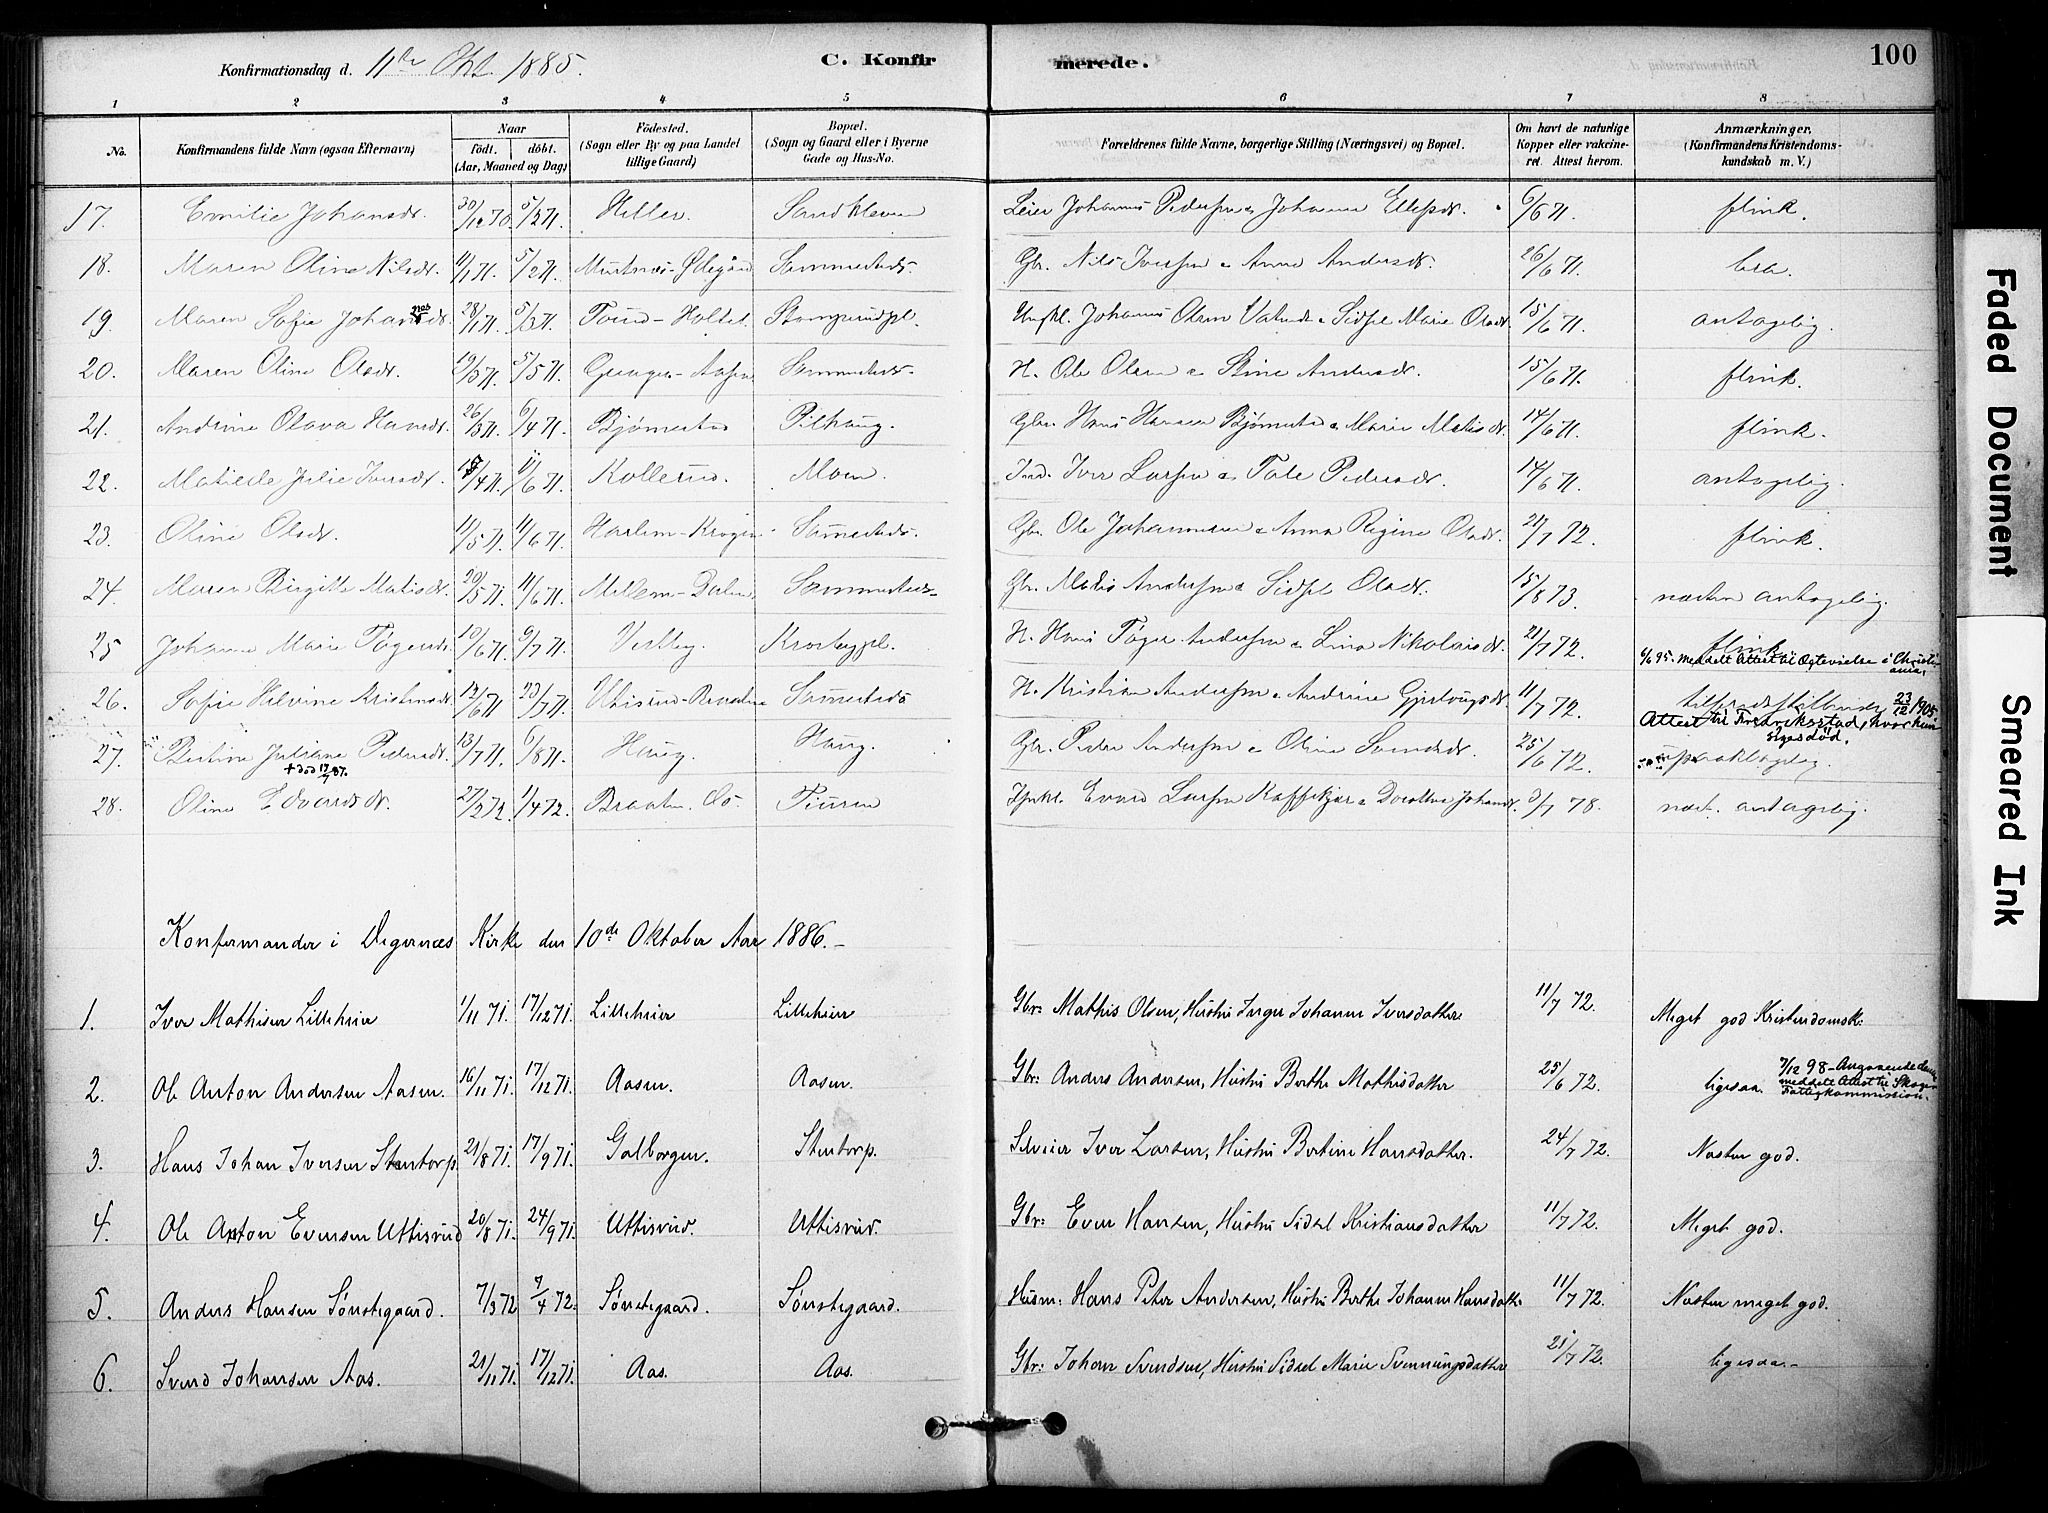 Konfirmationsdag d. 11te Okt. 1885.
C. Konfirmerede.
100
1 2 3 4 5 6 7 8
No.
Konfirmandens fulde Navn (ogsaa Efternavn)
Naar
födt. döbt.
(Aar, Maaned og Dag)
Födested.
(Sogn eller By og paa Landet
tillige Gaard)
Bopæl.
(Sogn og Gaard eller i Byerne
Gade og Hus-No.
Forældrenes fulde Navne, borgerlige Stilling (Næringsvei) og Bopæl.
Om havt de naturlige
Kopper eller vakcine-
ret. Attest herom.
Anmærkninger.
(Konfirmandens Kristendoms-
kundskab m. V.)
17. Emilie Johansdr. 30/12 70. 5/3 71. Heller Sandkleven Leier Johannes Pedersen & Johanne Ellefsdr. 6/6 71. flink.
18. Maren Oline Nilsdr. 11/1 71. 5/2 71. Sammesteds. Gbr. Nils Iversen & Anne Andersdr. 26/6 71. bra.
19. Maren Sofie Johansdr. 28/1 71. 5/3 71. Holtet Stomperudpl. Ungkl. Johannes Olsen & Sidsel Marie Olsdr. 15/6 71. antagelig.
20. Maren Oline Olsdr. 19/3 71. 5/5 71. Sammesteds. H. Ole Olsen & Stine Andersdr. 15/6 71. flink.
21. Andrine Olava Hansdr. 26/3 71. 6/4 71. Bjørnestad Pilhaug. Gbr. Hans Hansen Bjørnestad & Marie Matisdr. 14/6 71. flink.
22. Matilde Julie Iversdr. 4 71. 11/6 71. Kollerud. Moen. Ind. Iver Larsen & Tale Pedersdr. 14/6 71. antagelig.
23. Oline Olsdr. 11/5 71. 11/6 71. Harlem-Krogen Sammesteds. Gbr. Ole Johannesen & Anna Regine Olsdr. 21/7 72. flink.
24. Maren Birgitte Matisdr. 20/5 71. 11/6 71. Mellem-Dalen Sammesteds. Gbr. Matis Andersen & Sidsel Olsdr. 15/8 73. næsten antagelig.
25 Johanne Marie Tøgersdr. 10/6 71. 9/7 71. Vestby. Krosbypl. H. Hans Tøger Andersen & Lina Nikolaisdr. 21/7 72. flink
6/6 95. meddelt Attest til Ægtevielse i Christiania.
26. Sofie Helvine Kristiansdr. 12/6 71 23/7 71. Utisrud-Braaten Sammesteds H. Kristian Andersen & Andrine Gjestvangsdr. 11/7 72. tilfredsstillende 23/12 1905
Attest til Fredrikstad, hvor hun
siges død.
27. Bertine Juliane Pedersdr. 13/7 71. 6/8 71. Haug. Haug. Gbr. Peder Andersen & Oline Svendsdr. 25/6 72. upaaklagelig.
+ død 17/7 87.
28. Oline Edvardsdr. 27/2 72. 1/4 72. Braaten. Os Tiuren Ungkl. Evard Larsen Kaffekjær & Dorothea Johansdr. 3/7 78. næst. antagelig.
Konfirmander i Degernæs Kirke den 10de Oktober Aar 1886.-
1. Iver Mathisen Lilleheier 1/11 71. 17/12 71. Lilleheier Lilleheier Gbr: Mathis Olsen, Hustru Inger Johanne Iversdatter 11/7 72. Meget god Kristendomsk:
2. Ole Anton Andersen Aasen. 16/11 71. 17/12 71. Aasen. Aasen. Gbr: Anders Andersen, Hustru Berthe Mathisdatter 25/6 72. ligesaa. 7/12 98-Angaaende ham
meddelt Attest til Skogen
Fattigkommission.
3. Hans Johan Iversen Stentorp. 21/8 71. 17/9 71. Galborgen. Stentorp. Selveier Iver Larsen, Hustru Bertine Hansdatter. 24/7 72. Næsten god.
4. Ole Anton Evensen Uttisrud 20/8 71. 24/9 71. Uttisrud. Uttisrud. Gbr: Even Hansen, Hustru Sidsel Kristiansdatter 11/7 72. Meget god.
5. Anders Hansen Sønstegaard. 7/3 72 7/4 72. Sønstegaard. Sønstegaard. Husm: Hans Peter Andersen, Hustru Berthe Johanne Hansdatter 11/7 72. Næsten meget god.
6. Svend Johansen Aas. 21/11 71. 17/12 71. Aas. Aas. Gbr: Johan Svendsen, Hustru Sidsel Marie Svenningsdatter 21/7 72. ligesaa.-
Faded Document
Smeared Ink